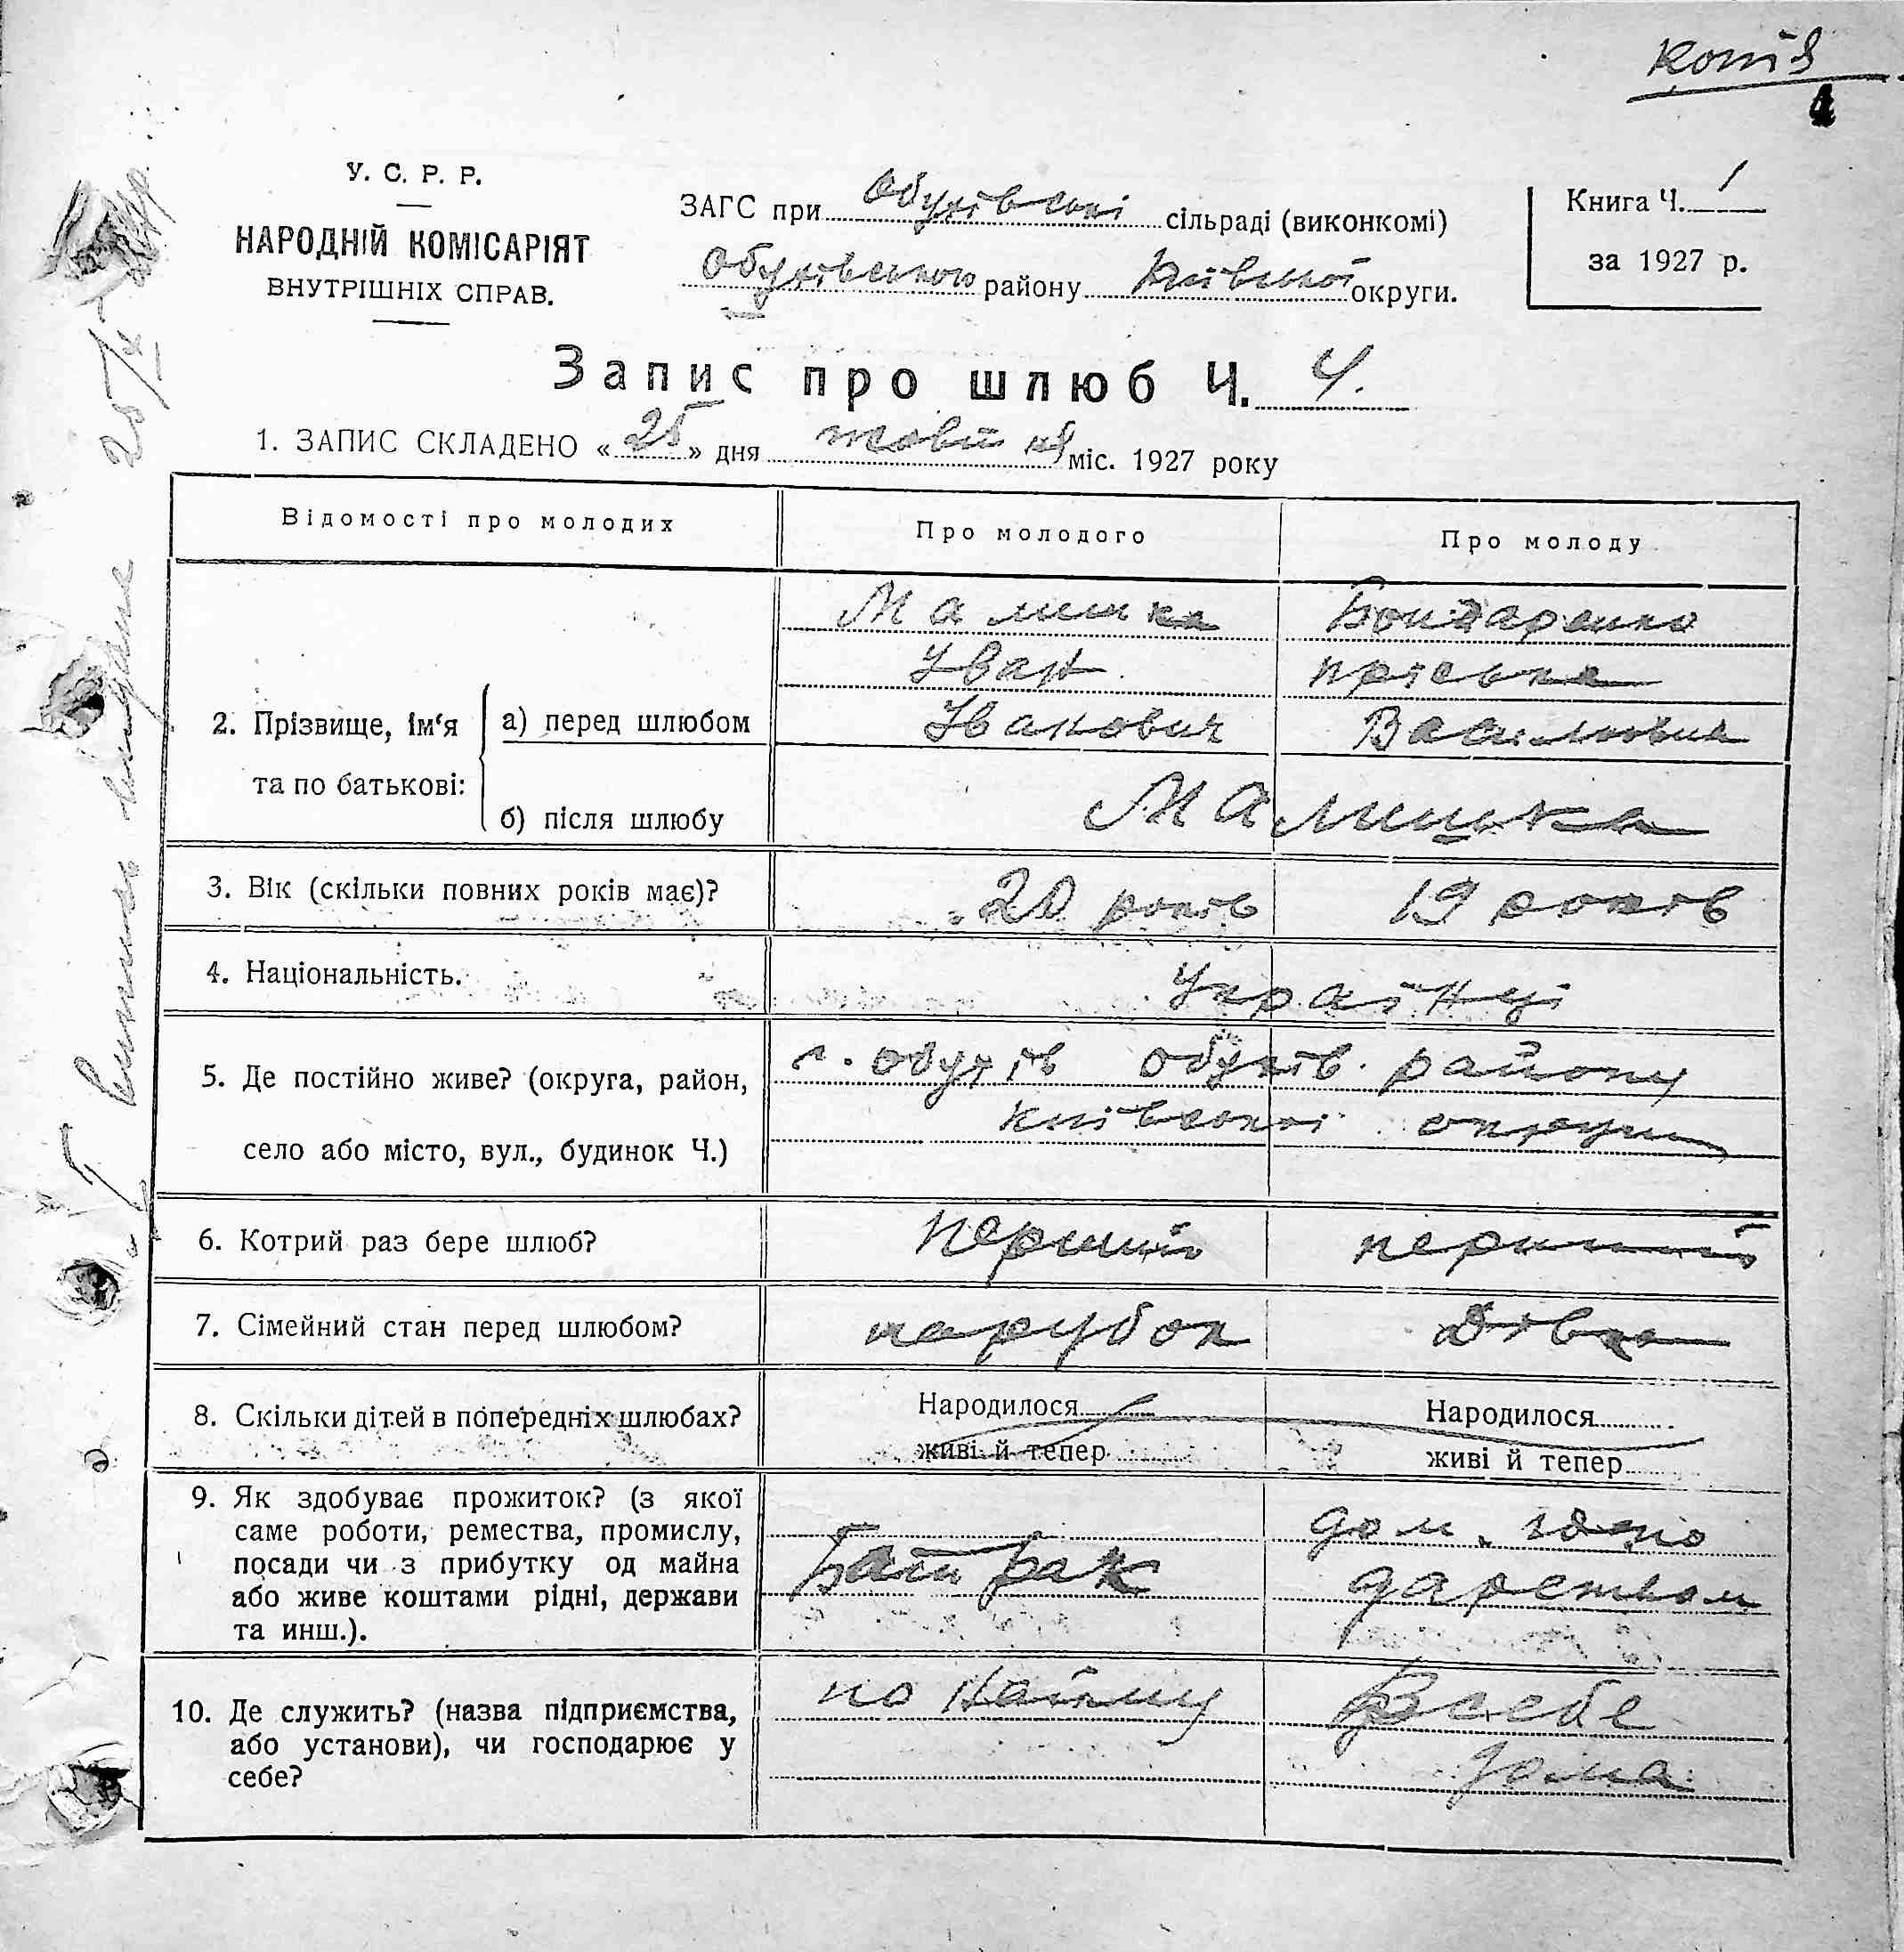 копія
У. С. Р. Р.
НАРОДНІЙ КОМІСАРІЯТ
ВНУТРІШНІХ СПРАВ.
ЗАГС при Обухівські сільраді (виконкомі)
Обухівського району Київської округи.
Книга Ч. 1
за 1927 р.
Запис про шлюб Ч. 4.
1. ЗАПИС СКЛАДЕНО «25» дня жовтня міс. 1927 року
Відомості про молодих
Про молодого
Про молоду
2. Прізвище, ім'я та по батькові:
а) перед шлюбом
Малишка
Іван
Іванович
Бондаренко
Пріська
Василівна
б) після шлюбу
Малишка
3. Вік (скільки повних років має)?
20 років
19 років
4. Національність.
Українці
5. Де постійно живе? (округа, район,
село або місто, вул., будинок Ч.)
с. Обухів Обухів. району
Київської округи
6. Котрий раз бере шлюб?
перший
перший
7. Сімейний стан перед шлюбом?
парубок
Дівка
8. Скільки дітей в попередніх шлюбах?
Народилося
живі й тепер
Народилося
живі й тепер
9. Як здобуває прожиток? (з якої
саме роботи, ремества, промислу,
посади чи з прибутку од майна
або живе коштами рідні, держави
та инш.).
Батрак
дом.
дарством
10. Де служить? (назва підприємства,
або установи), чи господарює у
себе?
по найму
В себе
дома
25/X